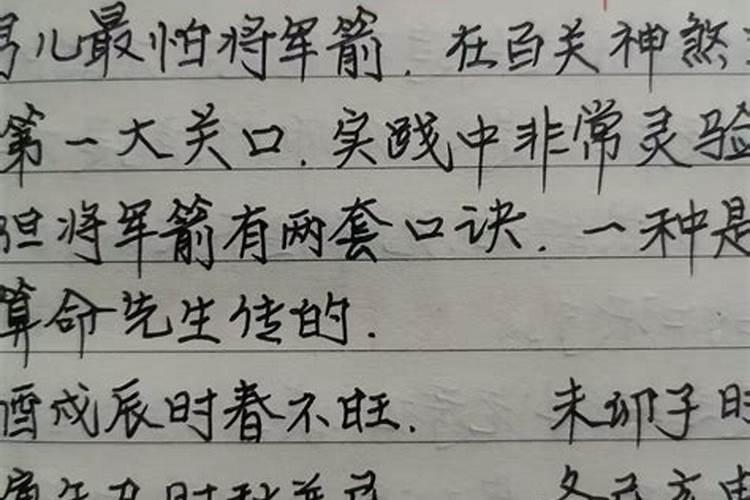 儿最怕将军箭.在百关神煞
第一大关口.实践中非常灵验
但将军箭有两套口诀.一种是
算命先生传的.
酉戌辰时春不旺. 未卯子时